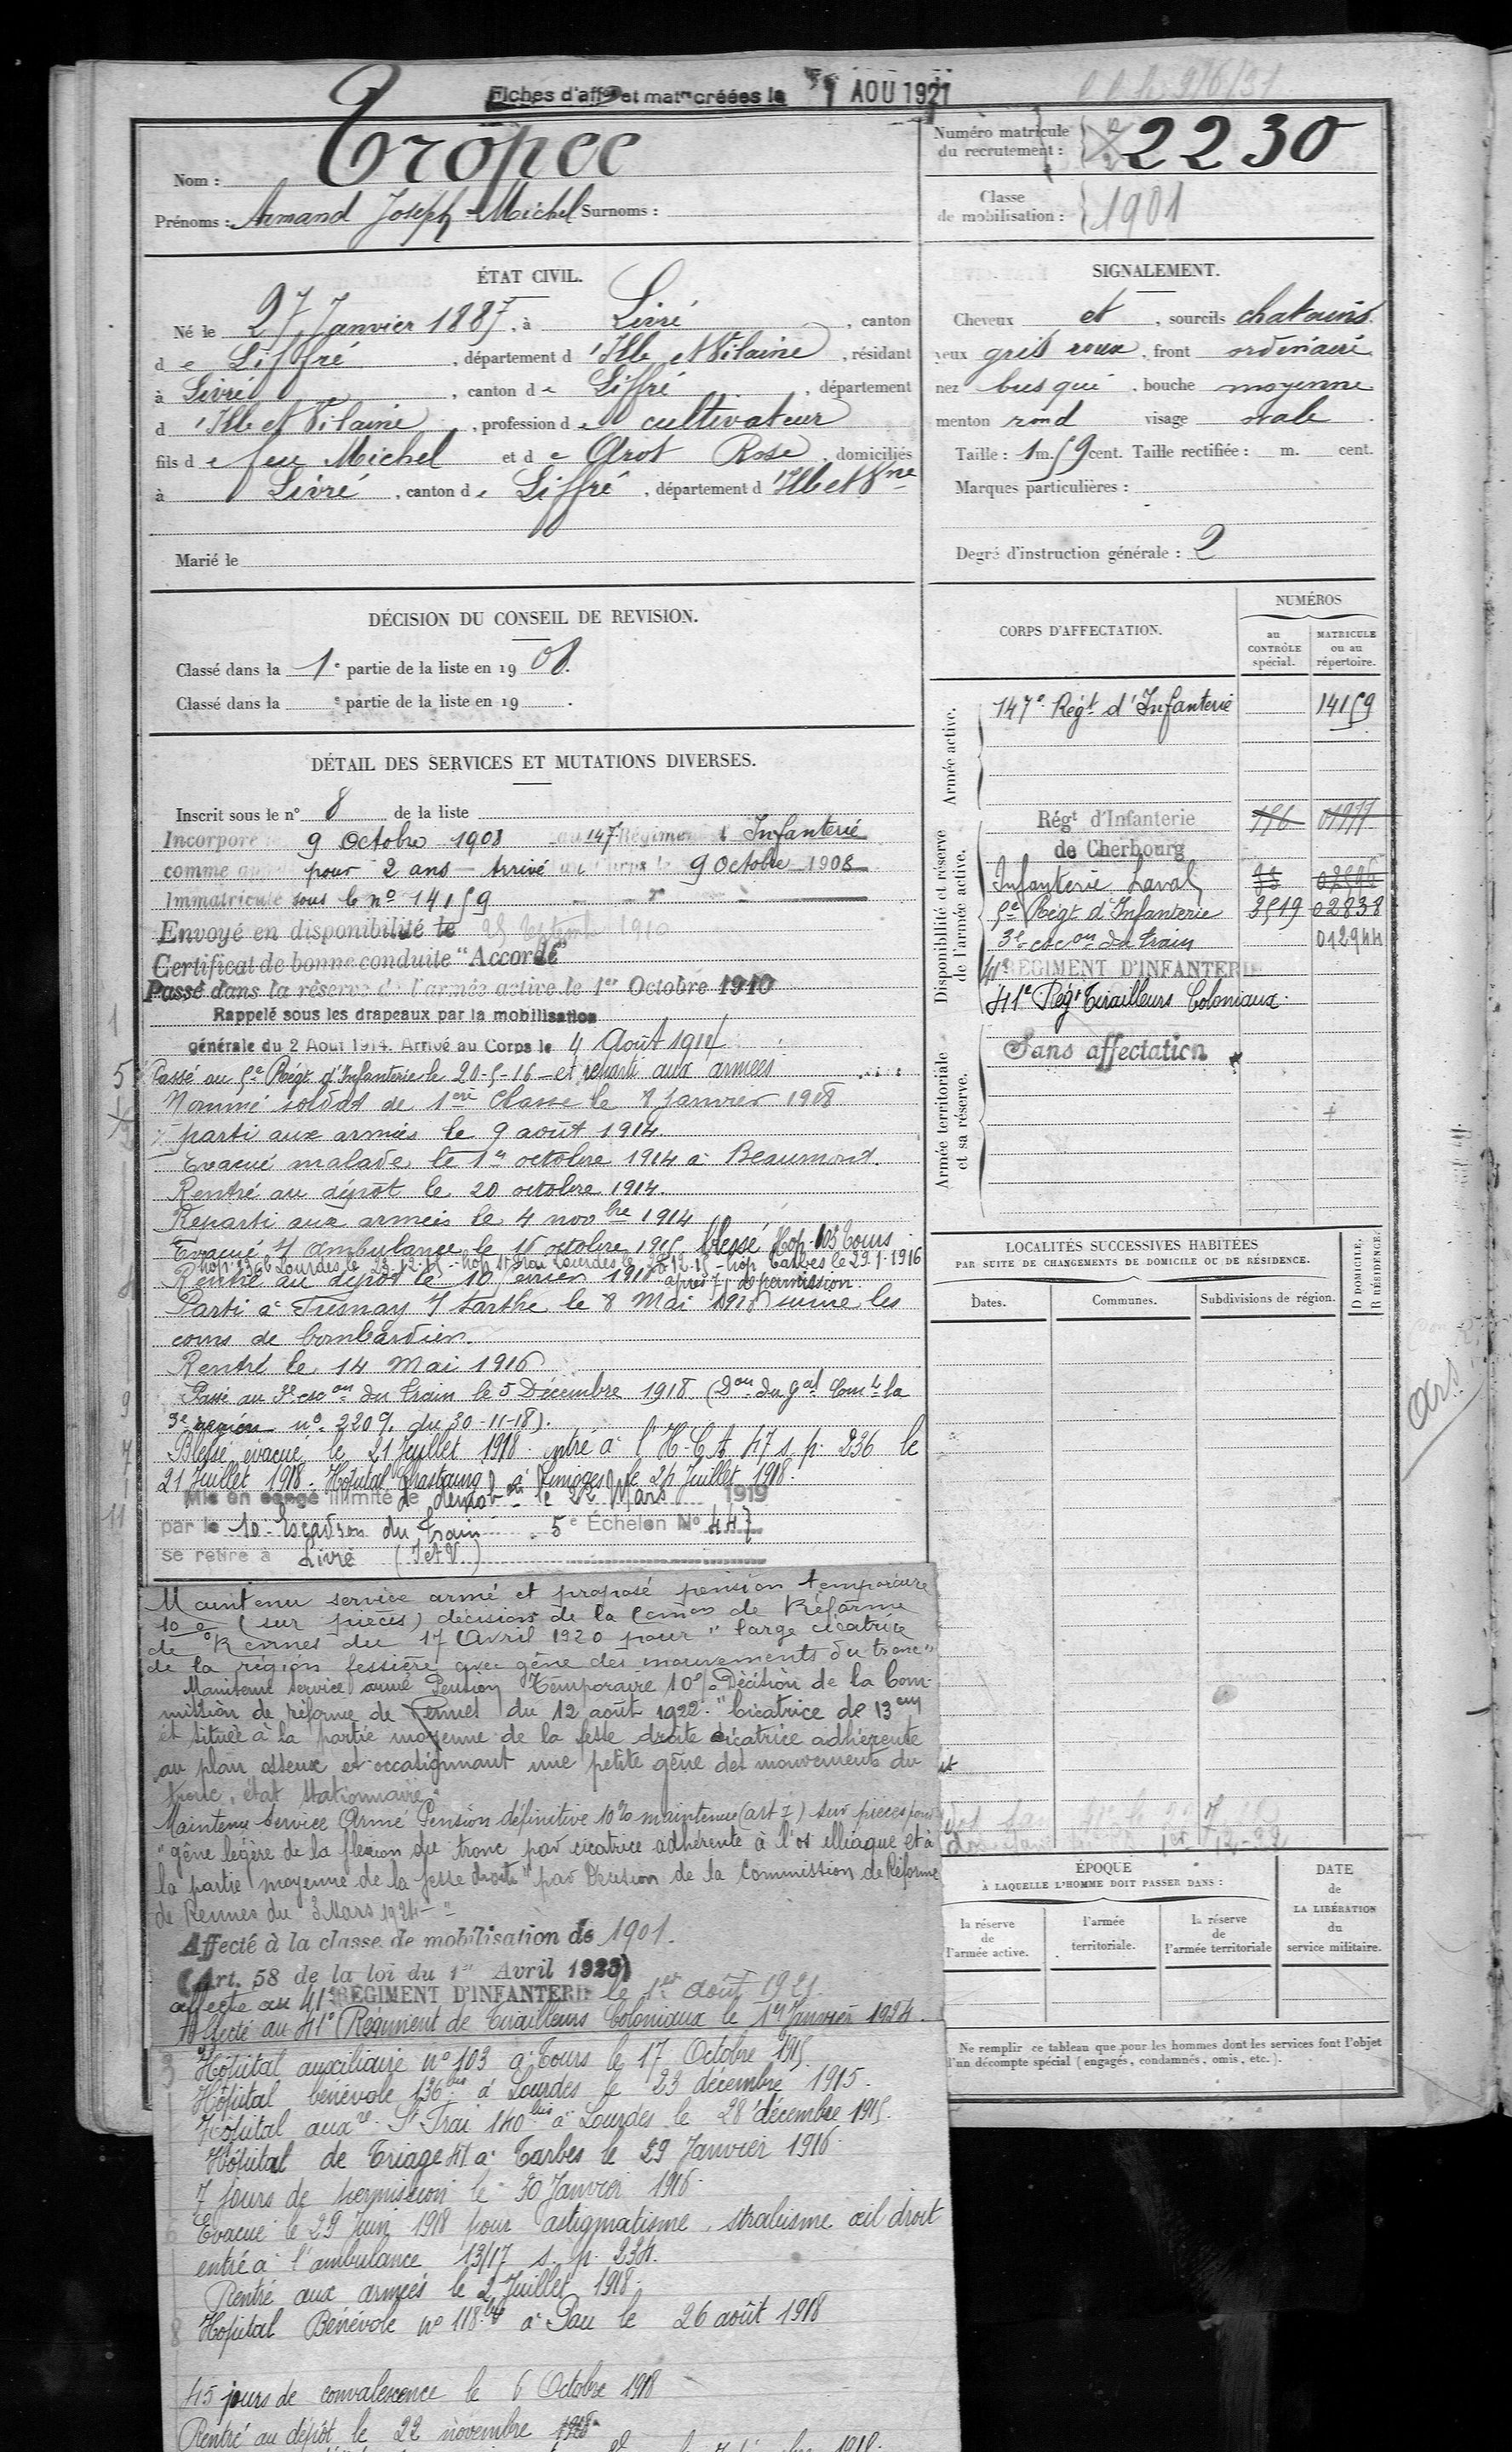 Fiches d'aff on et mat les créées le 1 AOU 1921
Tropée
Nom :
Prénoms : Armand Joseph Michel Surnoms :
Numéro matricule du recrutement : 2230
Classe de mobilisation : 1901
ÉTAT CIVIL.
Né le 27 Janvier 1887, à Livré, canton
de Liffré, département d'Ille et Vilaine, résidant
à Livré, canton de Liffré, département
d'Ille et Vilaine, profession de cultivateur
fils de feu Michel et de Arot Rose, domiciliés
à Livré, canton de Liffré, département d'Ille et Vne
Marié le
SIGNALEMENT.
Cheveux et, sourcils chatains
yeux gris roux, front ordinaire
nez busqué, bouche moyenne
menton rond visage ovale
Taille : 1 m. 59 cent. Taille rectifiée : m. cent.
Marques particulières :
Degré d'instruction générale : 2
DÉCISION DU CONSEIL DE REVISION.
Classé dans la 1e partie de la liste en 1908.
Classé dans la e partie de la liste en 19 .
DÉTAIL DES SERVICES ET MUTATIONS DIVERSES.
Inscrit sous le n° 8 de la liste
Incorporé le 9 Octobre 1908 au 147 Régiment d'Infanterie
comme appelé pour 2 ans - Arrivé au Corps le 9 Octobre 1908
Immatriculé sous le n° 14159
Envoyé en disponibilité le 25 Septembre 1910
Certificat de bonne conduite "Accordé"
Passé dans la réserve de l'armée active le 1er Octobre 1910
Rappelé sous les drapeaux par la mobilisation
générale du 2 Août 1914. Arrivé au Corps le 4 Août 1914
Passé au 5e Régt d'Infanterie le 20-5-16 - et reparti aux armées
Nommé soldat de 1ère Classe le 8 Janvier 1918
parti aux armées le 9 août 1914.
Evacué malade le 1er octobre 1914 à Beaumont.
Rentré au dépôt le 20 octobre 1914.
Reparti aux armées le 4 novbre 1914
Evacué s/ ambulance le 15 octobre 1915 blessé Hop. 103 Tours
hop. 136b Lourdes le 23-12-15 - hop St Frai Lourdes le 28-12-15 - hop Tarbes le 29-1-1916
Rentré au dépôt le 10 février 1916 après 7 j de permission.
Parti à Fresnay s/ Sarthe le 8 Mai 1916 suivre les
cours de bombardier.
Rentré le 14 Mai 1916
Passé au 3e escon du train le 5 Décembre 1918 (Don du Gal Comt la
3e région n° 2209 du 30-11-18).
Blessé évacué le 21 Juillet 1918. entré à l'H.C.A. 47 s. p. 236 le
21 Juillet 1918. Hôpital Chastaing à Limoges le 24 Juillet 1918.
Mis en congé illimité de démobon le 22 Mars 1919
par le 10 Escadron du Train 5e Échelon N° 447
se retire à Livré (I et V.)
Maintenu service armé et proposé pension temporaire
10 % (sur pièces) décision de la Comon de Réforme
de Rennes du 17 Avril 1920 pour "large cicatrice
de la région fessière avec gêne des mouvements du tronc"
Maintenu service armé Pension Temporaire 10% Décision de la Com-
mission de réforme de Rennes du 12 août 1922. "Cicatrice de 13 cm
et située à la partie moyenne de la fesse droite cicatrice adhérente
au plan osseux et occasionnant une petite gêne des mouvements du
tronc, état stationnaire"
Maintenu Service Armé Pension définitive 10% maintenue (art 7) sur pièces pour
"gêne légère de la flexion du tronc par cicatrice adhérente à l'os illiaque et à
la partie moyenne de la fesse droite" par Décision de la Commission de Réforme
de Rennes du 3 Mars 1924 -
Affecté à la classe de mobilisation de 1901.
(Art. 58 de la loi du 1er Avril 1923)
affecté au 41e RÉGIMENT D'INFANTERIE le 1er août 1921.
Affecté au 41e Régiment de Tirailleurs Coloniaux le 1er Janvier 1924.
Hôpital auxiliaire n° 103 à Tours le 17 Octobre 1915
Hôpital bénévole 136bis à Lourdes le 23 décembre 1915.
Hôpital auxre St Frai 140bis à Lourdes le 28 décembre 1915.
Hôpital de Triage 41 à Tarbes le 29 Janvier 1916.
7 jours de permission le 30 Janvier 1916.
Evacué le 29 Juin 1918 pour astigmatisme, strabisme œil droit
entré à l'ambulance 13/17 s. p. 234.
Rentré aux armées le 2 Juillet 1918.
Hôpital Bénévole n° 118bis à Pau le 26 août 1918
45 jours de convalescence le 6 Octobre 1918
Rentré au dépôt le 22 novembre 1918
CORPS D'AFFECTATION.
NUMÉROS
au CONTRÔLE spécial.
MATRICULE ou au répertoire.
Armée active.
147e Régt d'Infanterie 14159
Disponibilité et réserve de l'armée active.
Régt d'Infanterie
de Cherbourg
Infanterie Laval
5e Régt d'Infanterie 3519 02838
3e escon du train 012944
41e RÉGIMENT D'INFANTERIE
41e Régt Tirailleurs Coloniaux.
Armée territoriale et sa réserve.
Sans affectation
LOCALITÉS SUCCESSIVES HABITÉES
PAR SUITE DE CHANGEMENTS DE DOMICILE OU DE RÉSIDENCE.
Dates. Communes. Subdivisions de région. D DOMICILE. R RÉSIDENCE.
ÉPOQUE
À LAQUELLE L'HOMME DOIT PASSER DANS :
la réserve de l'armée active.
l'armée territoriale.
la réserve de l'armée territoriale
DATE de LA LIBÉRATION du service militaire.
Ne remplir ce tableau que pour les hommes dont les services font l'objet
d'un décompte spécial (engagés, condamnés, omis, etc.).